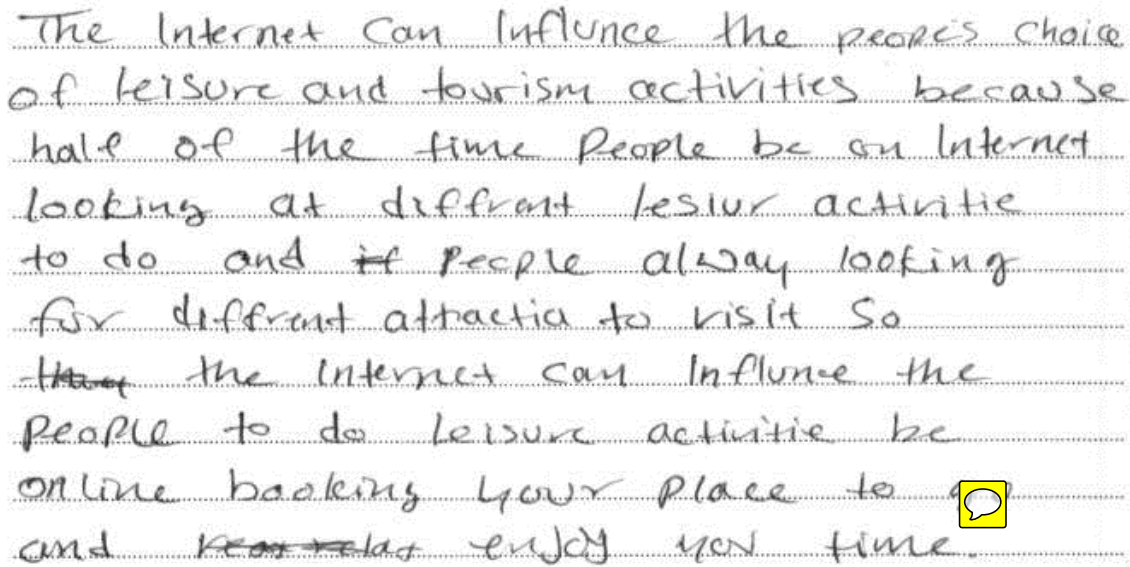 The Internet Can Influnce the peope's choice
of leisure and tourism activities because
half of the time People be on Internet
looking at diffrant lesiur activitie
to do and if People alway looking
for diffrent attractia to visit So
the Internet can Influnce the
People to do leisure activitie be
online booking your place to
and enjoy you time.